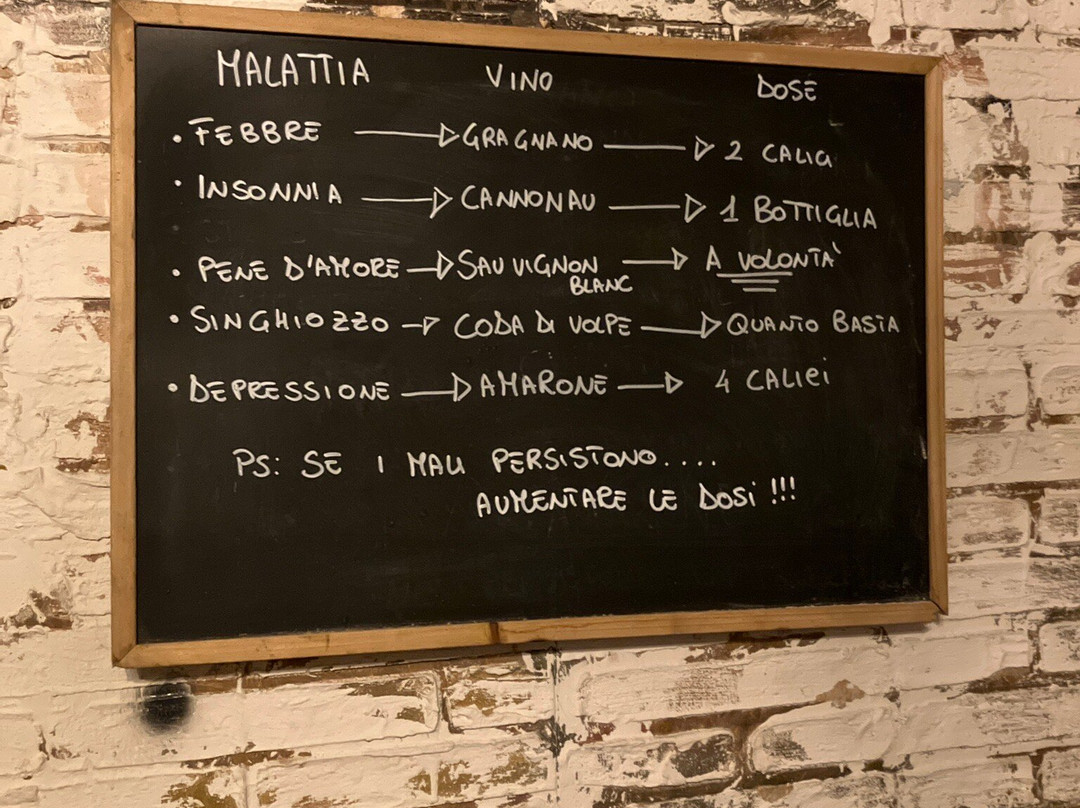 MALATTIA VINO DOSE
• FEBBRE → GRAGNANO → 2 CALICI
• INSONNIA → CANNONAU → 1 BOTTIGLIA
• PENE D'AMORE → SAUVIGNON BLANC → A VOLONTÀ
• SINGHIOZZO → CODA DI VOLPE → QUANTO BASTA
• DEPRESSIONE → AMARONE → 4 CALICI
PS: SE I MALI PERSISTONO....
AUMENTARE LE DOSI !!!